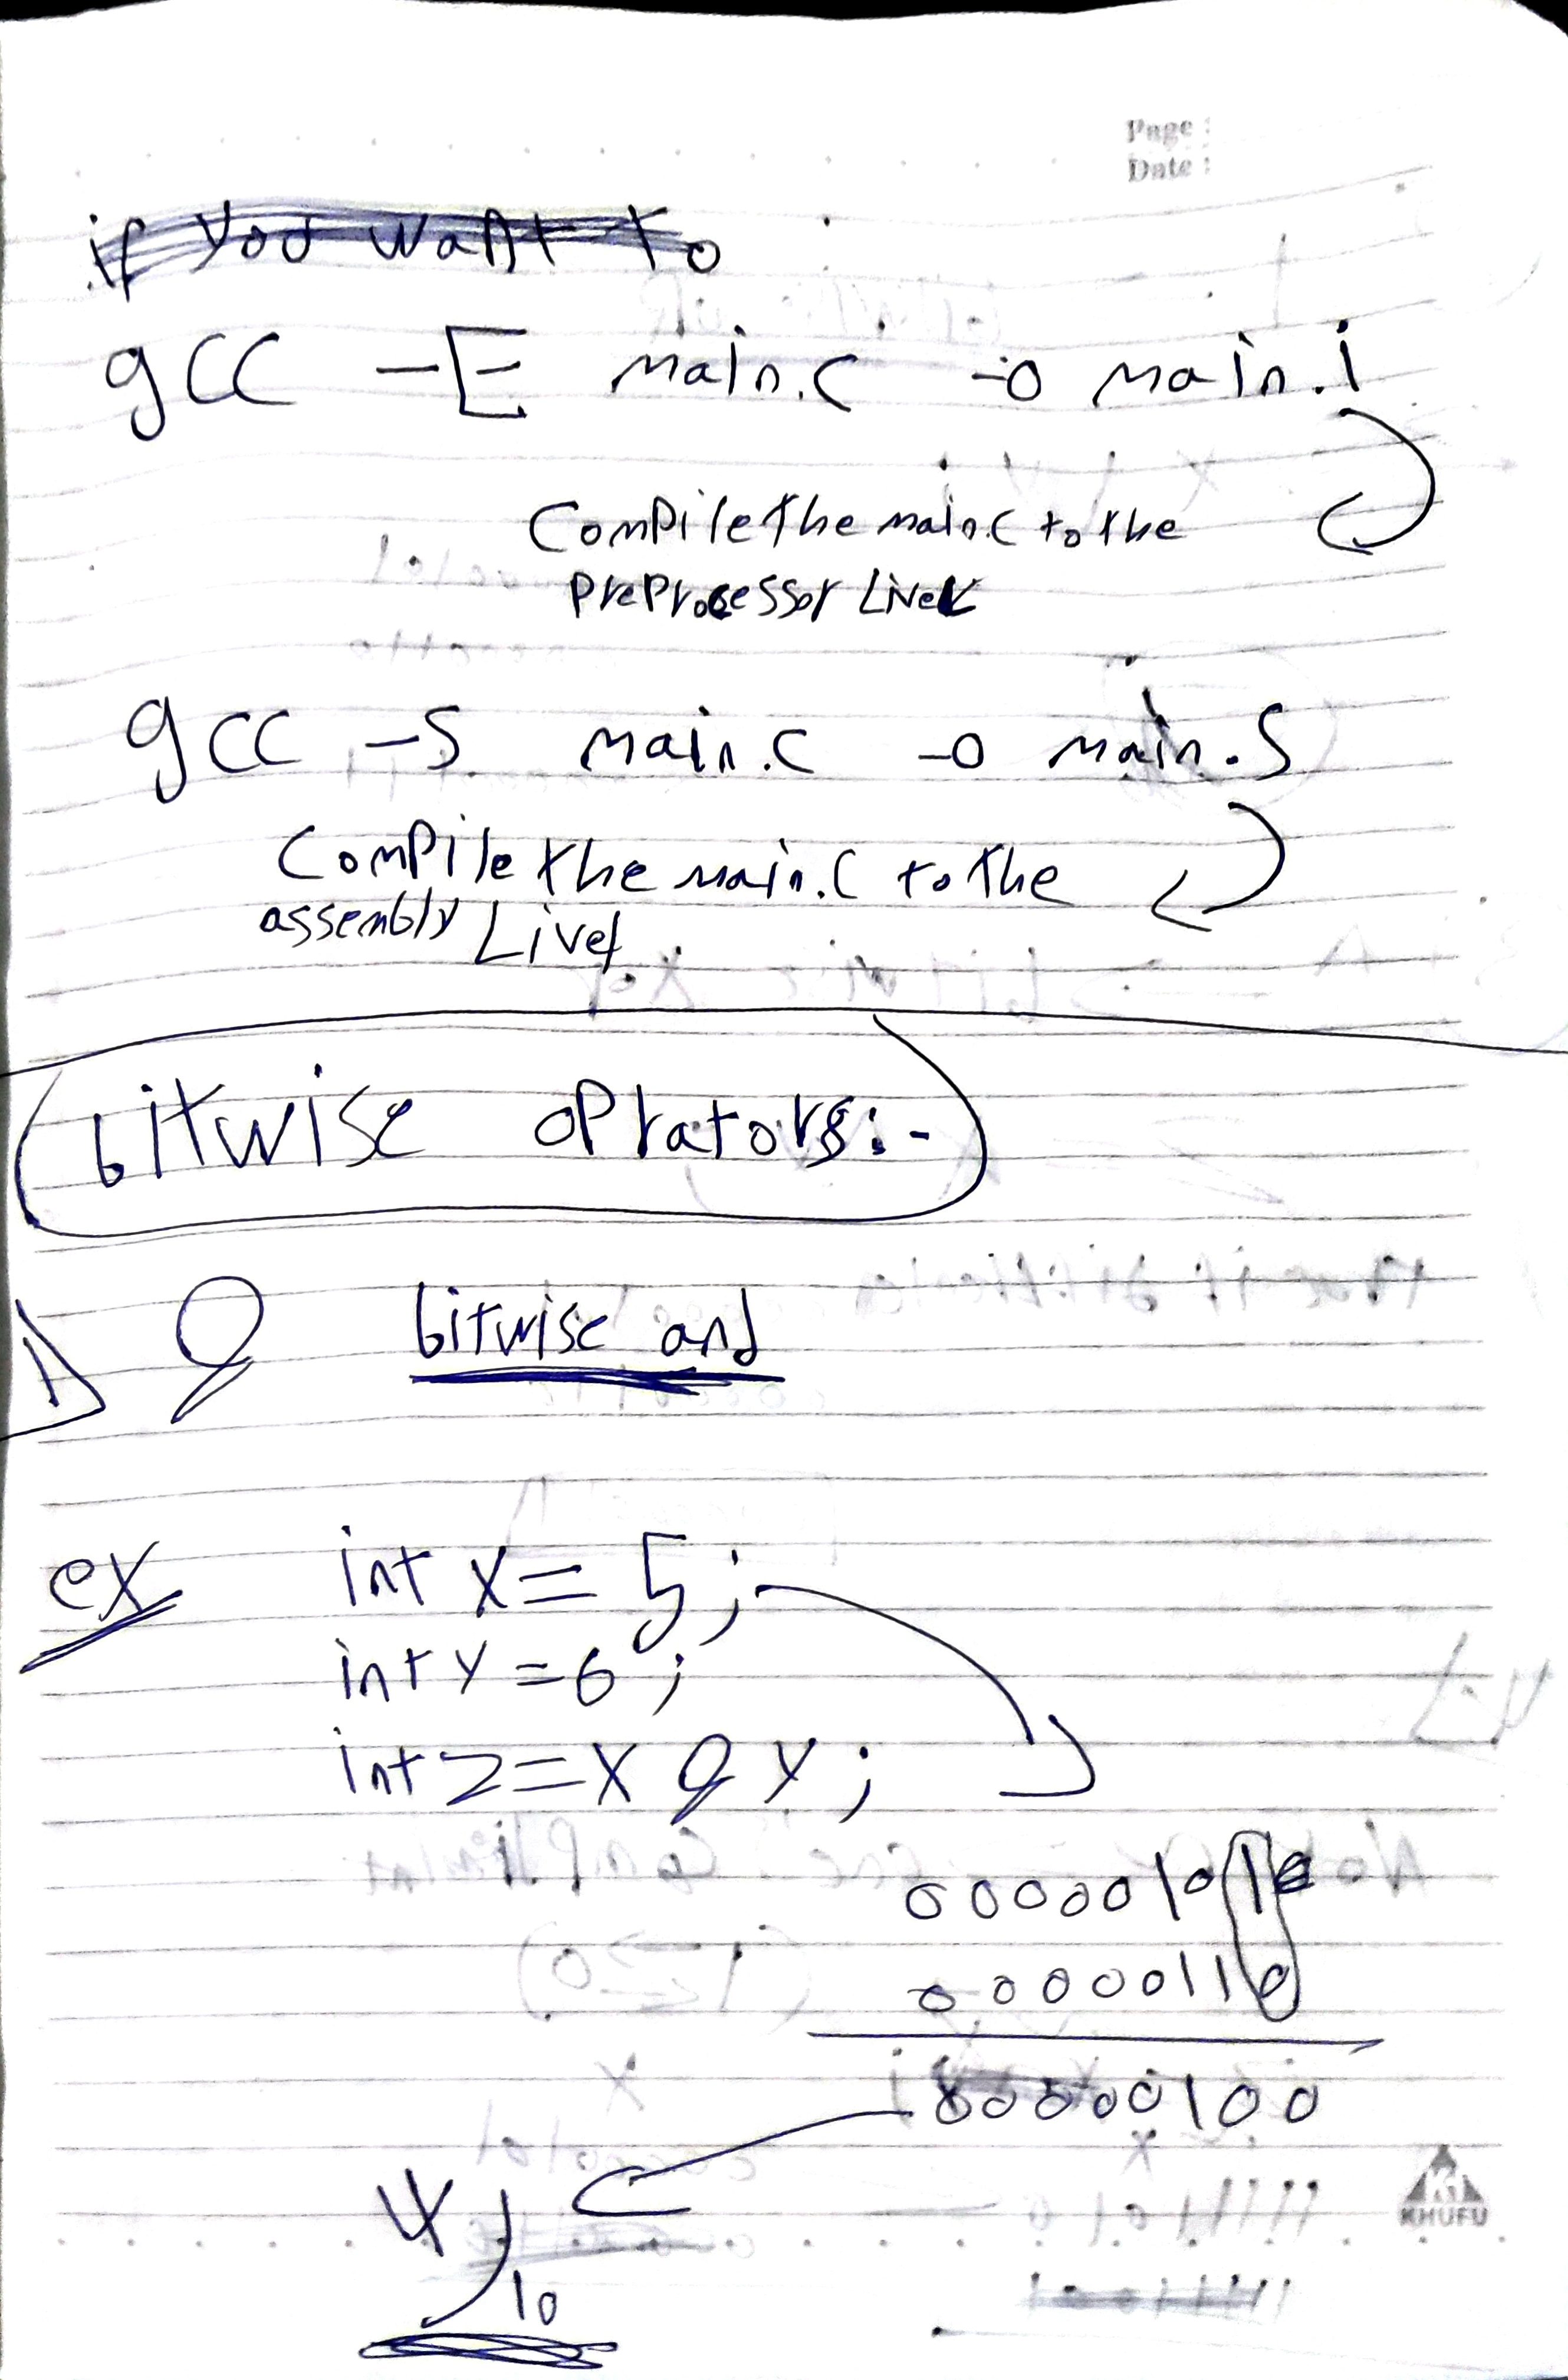 Page :
Date :
if you want to
gcc -E main.c -o main.i
Compile the main.c to the
PreProcessor Livel
gcc -S main.c -o main.S
Compile the main.c to the
assembly Livel
bitwise oPrators:-
1) & bitwise and
ex int x = 5;
int y = 6;
int z = x & y;
00000101
00000110
00000100
4)10
KHUFU